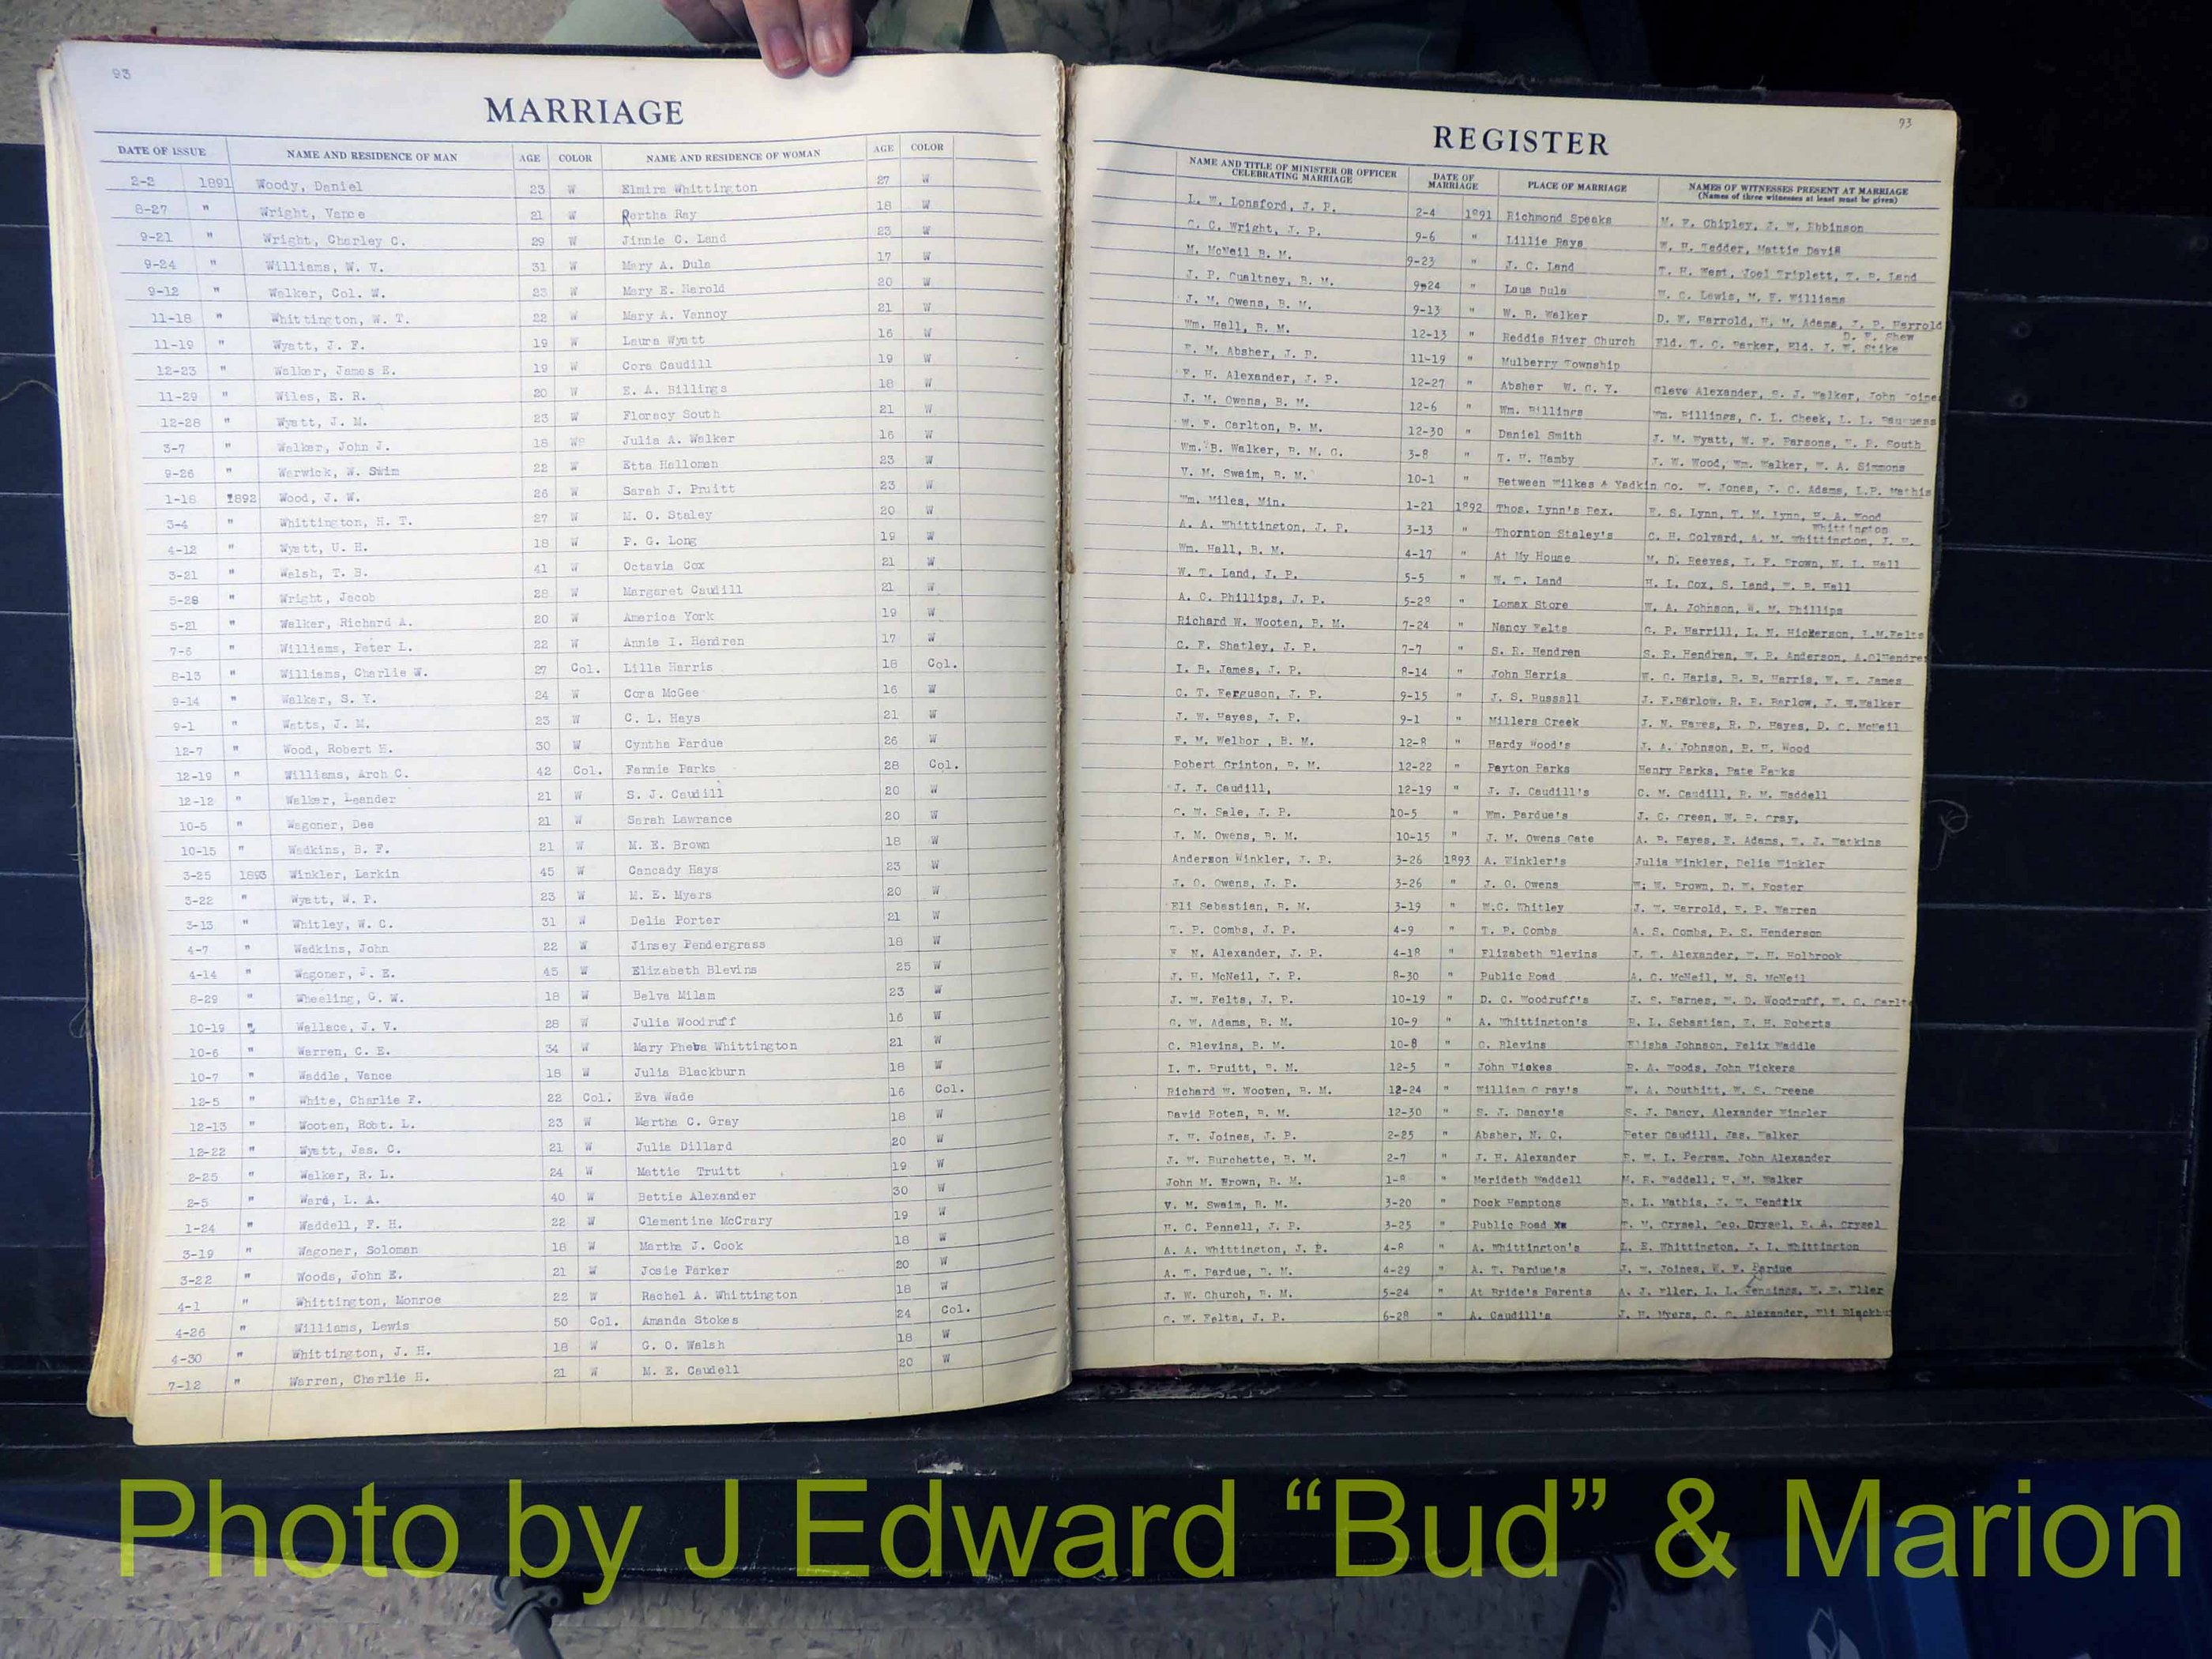 93
MARRIAGE
DATE OF ISSUE NAME AND RESIDENCE OF MAN AGE COLOR NAME AND RESIDENCE OF WOMAN AGE COLOR
2-2 1891 Woody, Daniel 23 W Elmira Whittington 27 W
8-27 " Wright, Vance 21 W Bertha Ray 18 W
9-21 " Wright, Charley C. 29 W Jinnie C. Land 23 W
9-24 " Williams, W. V. 31 W Mary A. Dula 17 W
9-12 " Walker, Col. W. 23 W Mary E. Harold 20 W
11-18 " Whittington, W. T. 22 W Mary A. Vannoy 21 W
11-19 " Wyatt, J. F. 19 W Laura Wyatt 16 W
12-23 " Walker, James E. 19 W Cora Caudill 19 W
11-29 " Wiles, E. R. 20 W E. A. Billings 18 W
12-28 " Wyatt, J. M. 23 W Floracy South 21 W
3-7 " Walker, John J. 18 Julia A. Walker 16 W
9-26 " Warwick, W. Swim 22 W Etta Halloman 23 W
1-18 1892 Wood, J. W. 26 W Sarah J. Pruitt 23 W
3-4 " Whittington, H. T. 27 W M. O. Staley 20 W
4-12 " Wyatt, U. H. 18 W P. G. Long 19 W
3-21 " Walsh, T. B. 41 W Octavia Cox 21 W
5-28 " Wright, Jacob 28 W Margaret Caudill 21 W
5-21 " Walker, Richard A. 20 W America York 19 W
7-6 " Williams, Peter L. 22 W Annie I. Hendren 17 W
8-13 " Williams, Charlie W. 27 Col. Lilla Harris 18 Col.
9-14 " Walker, S. Y. 24 W Cora McGee 16 W
9-1 " Watts, J. M. 23 W C. L. Hays 21 W
12-7 " Wood, Robert H. 30 W Cyntha Pardue 26 W
12-19 " Williams, Arch C. 42 Col. Fannie Parks 28 Col.
12-12 " Walker, Leander 21 W S. J. Caudill 20 W
10-5 " Wagoner, Dee 21 W Sarah Lawrance 20 W
10-15 " Wadkins, B. F. 21 W M. E. Brown 18 W
3-25 1893 Winkler, Larkin 45 W Cancady Hays 23 W
3-22 " Wyatt, W. P. 23 W M. E. Myers 20 W
3-13 " Whitley, W. C. 31 W Delia Porter 21 W
4-7 " Wadkins, John 22 W Jinsey Pendergrass 18 W
4-14 " Wagoner, J. E. 45 W Elizabeth Blevins 25 W
8-29 " Wheeling, G. W. 18 W Belva Milam 23 W
10-19 " Wallace, J. V. 28 W Julia Woodruff 16 W
10-6 " Warren, C. E. 34 W Mary Pheba Whittington 21 W
10-7 " Waddle, Vance 18 W Julia Blackburn 18 W
12-5 " White, Charlie F. 22 Col. Eva Wade 16 Col.
12-13 " Wooten, Robt. L. 23 W Martha C. Gray 18 W
12-22 " Wyatt, Jas. C. 21 W Julia Dillard 20 W
2-25 " Walker, R. L. 24 W Mattie Truitt 19 W
2-5 " Ward, L. A. 40 W Bettie Alexander 30 W
1-24 " Waddell, F. H. 22 W Clementine McCrary 19 W
3-19 " Wagoner, Soloman 18 W Martha J. Cook 18 W
3-22 " Woods, John E. 21 W Josie Parker 20 W
4-1 " Whittington, Monroe 22 W Rachel A. Whittington 18 W
4-26 " Williams, Lewis 50 Col. Amanda Stokes 24 Col.
4-30 " Whittington, J. H. 18 W G. O. Walsh 18 W
7-12 " Warren, Charlie H. 21 W M. E. Caudell 20 W
93
REGISTER
NAME AND TITLE OF MINISTER OR OFFICER CELEBRATING MARRIAGE DATE OF MARRIAGE PLACE OF MARRIAGE NAMES OF WITNESSES PRESENT AT MARRIAGE
(Names of three witnesses at least must be given)
L. W. Lonsford, J. P. 2-4 1891 Richmond Speaks M. F. Chipley, J. W. Ebbinson
C. C. Wright, J. P. 9-6 " Lillie Rays W. H. Tedder, Mattie Davis
M. McNeil B. M. 9-23 " J. C. Land T. H. West, Joel Triplett, T. B. Land
J. P. Gualtney, B. M. 9-24 " Laua Dula W. C. Lewis, M. F. Williams
J. M. Owens, B. M. 9-13 " W. B. Walker D. W. Harrold, H. M. Adams, J. P. Harrold
Wm. Hall, B. M. 12-13 " Reddis River Church Eld. T. C. Parker, Eld. J. W. Stike D. F. Shew
F. M. Absher, J. P. 11-19 " Mulberry Township
F. H. Alexander, J. P. 12-27 " Absher W. C. Y. Cleve Alexander, S. J. Walker, John Joine
J. M. Owens, B. M. 12-6 " Wm. Billings Wm. Billings, C. L. Cheek, L. L.
W. F. Carlton, B. M. 12-30 " Daniel Smith J. M. Wyatt, W. F. Parsons, South
Wm. B. Walker, B. M. G. 3-8 " T. H. Hamby J. W. Wood, Wm. Walker, W. A. Simmons
V. M. Swaim, B. M. 10-1 " Between Wilkes & Yadkin Co. W. Jones, J. C. Adams, L.P. Mathis
Wm. Miles, Min. 1-21 1892 Thos. Lynn's Rex. E. S. Lynn, T. M. Lynn, H. A. Wood
A. A. Whittington, J. P. 3-13 " Thornton Staley's C. H. Colvard, A. M. Whittington, J. H. Whittington
Wm. Hall, B. M. 4-17 " At My House M. D. Reeves, J. F. Brown, N. L. Hall
W. T. Land, J. P. 5-5 " W. T. Land H. L. Cox, S. Land, W. B. Hall
A. C. Phillips, J. P. 5-28 " Lomax Store W. A. Johnson, W. M. Phillips
Richard W. Wooten, B. M. 7-24 " Nancy Felts G. P. Harrill, L. N. Hickerson, L.M.Felts
C. F. Shatley, J. P. 7-7 " S. R. Hendren S. R. Hendren, W. B. Anderson, Hendre
I. B. James, J. P. 8-14 " John Harris W. C. Haris, B. B. Harris, W. E. James
C. T. Ferguson, J. P. 9-15 " J. S. Russell J. F.Barlow, R. E. Barlow, J. W.Walker
J. W. Hayes, J. P. 9-1 " Millers Creek J. N. Hayes, R. D. Hayes, D. C. McNeil
F. M. Welbor , B. M. 12-8 " Hardy Wood's J. A. Johnson, R. H. Wood
Robert Grinton, B. M. 12-22 " Payton Parks Henry Parks, Pate Parks
J. J. Caudill, 12-19 " J. J. Caudill's C. M. Caudill, R. M. Waddell
C. W. Sale, J. P. 10-5 " Wm. Pardue's J. C. Green, W. P. Gray,
J. M. Owens, B. M. 10-15 " J. M. Owens Gate A. P. Hayes, E. Adams, T. J. Watkins
Anderson Winkler, J. P. 3-26 1893 A. Winkler's Julia Winkler, Delia Winkler
J. O. Owens, J. P. 3-26 " J. O. Owens W. W. Brown, D. W. Foster
Eli Sebastian, B. M. 3-19 " W.C. Whitley J. W. Harrold, E. P. Warren
T. P. Combs, J. P. 4-9 " T. P. Combs A. S. Combs, P. S. Henderson
F N. Alexander, J. P. 4-18 " Elizabeth Blevins J. T. Alexander, W. H. Holbrook
J. H. McNeil, J. P. 8-30 " Public Road A. C. McNeil, M. S. McNeil
J. W. Felts, J. P. 10-19 " D. C. Woodruff's J. S. Barnes, W. D. Woodruff, W. C. Carlt
G. W. Adams, B. M. 10-9 " A. Whittington's R. L. Sebastian, E. H. Roberts
C. Blevins, B. M. 10-8 " C. Blevins Elisha Johnson, Felix Waddle
I. T. Pruitt, B. M. 12-5 " John Vickes R. A. Woods, John Vickers
Richard W. Wooten, B. M. 12-24 " William G ray's W. A. Douthitt, W. S. Greene
David Poten, B. M. 12-30 " S. J. Dancy's S. J. Dancy, Alexander Wingler
J. H. Joines, J. P. 2-25 " Absher, N. C. Peter Caudill, Jas. Walker
J. W. Burchette, B. M. 2-7 " J. H. Alexander R. W. L. Pegram, John Alexander
John M. Brown, B. M. 1-8 " Merideth Waddell M. R. Waddell, H. M. Walker
V. M. Swaim, B. M. 3-20 " Dock Hamptons B. L. Mathis, J. W. Hendrix
H. C. Pennell, J. P. 3-25 " Public Road T. M. Crysel, Geo. Crysel, R. A. Crysel
A. A. Whittington, J. P. 4-8 " A. Whittington's L. E. Whittington, J. L. Whittington
A. T. Pardue, B. M. 4-29 " A. T. Pardue's J. W. Joines, W. F. Pardue
J. W. Church, B. M. 5-24 " At Bride's Parents A. J. Eller, L. L. Jennings, Eller
C. W. Felts, J. P. 6-28 " A. Caudill's J. H. Myers, C. C. Alexander, Eli Blackbu
Photo by J Edward “Bud” & Marion